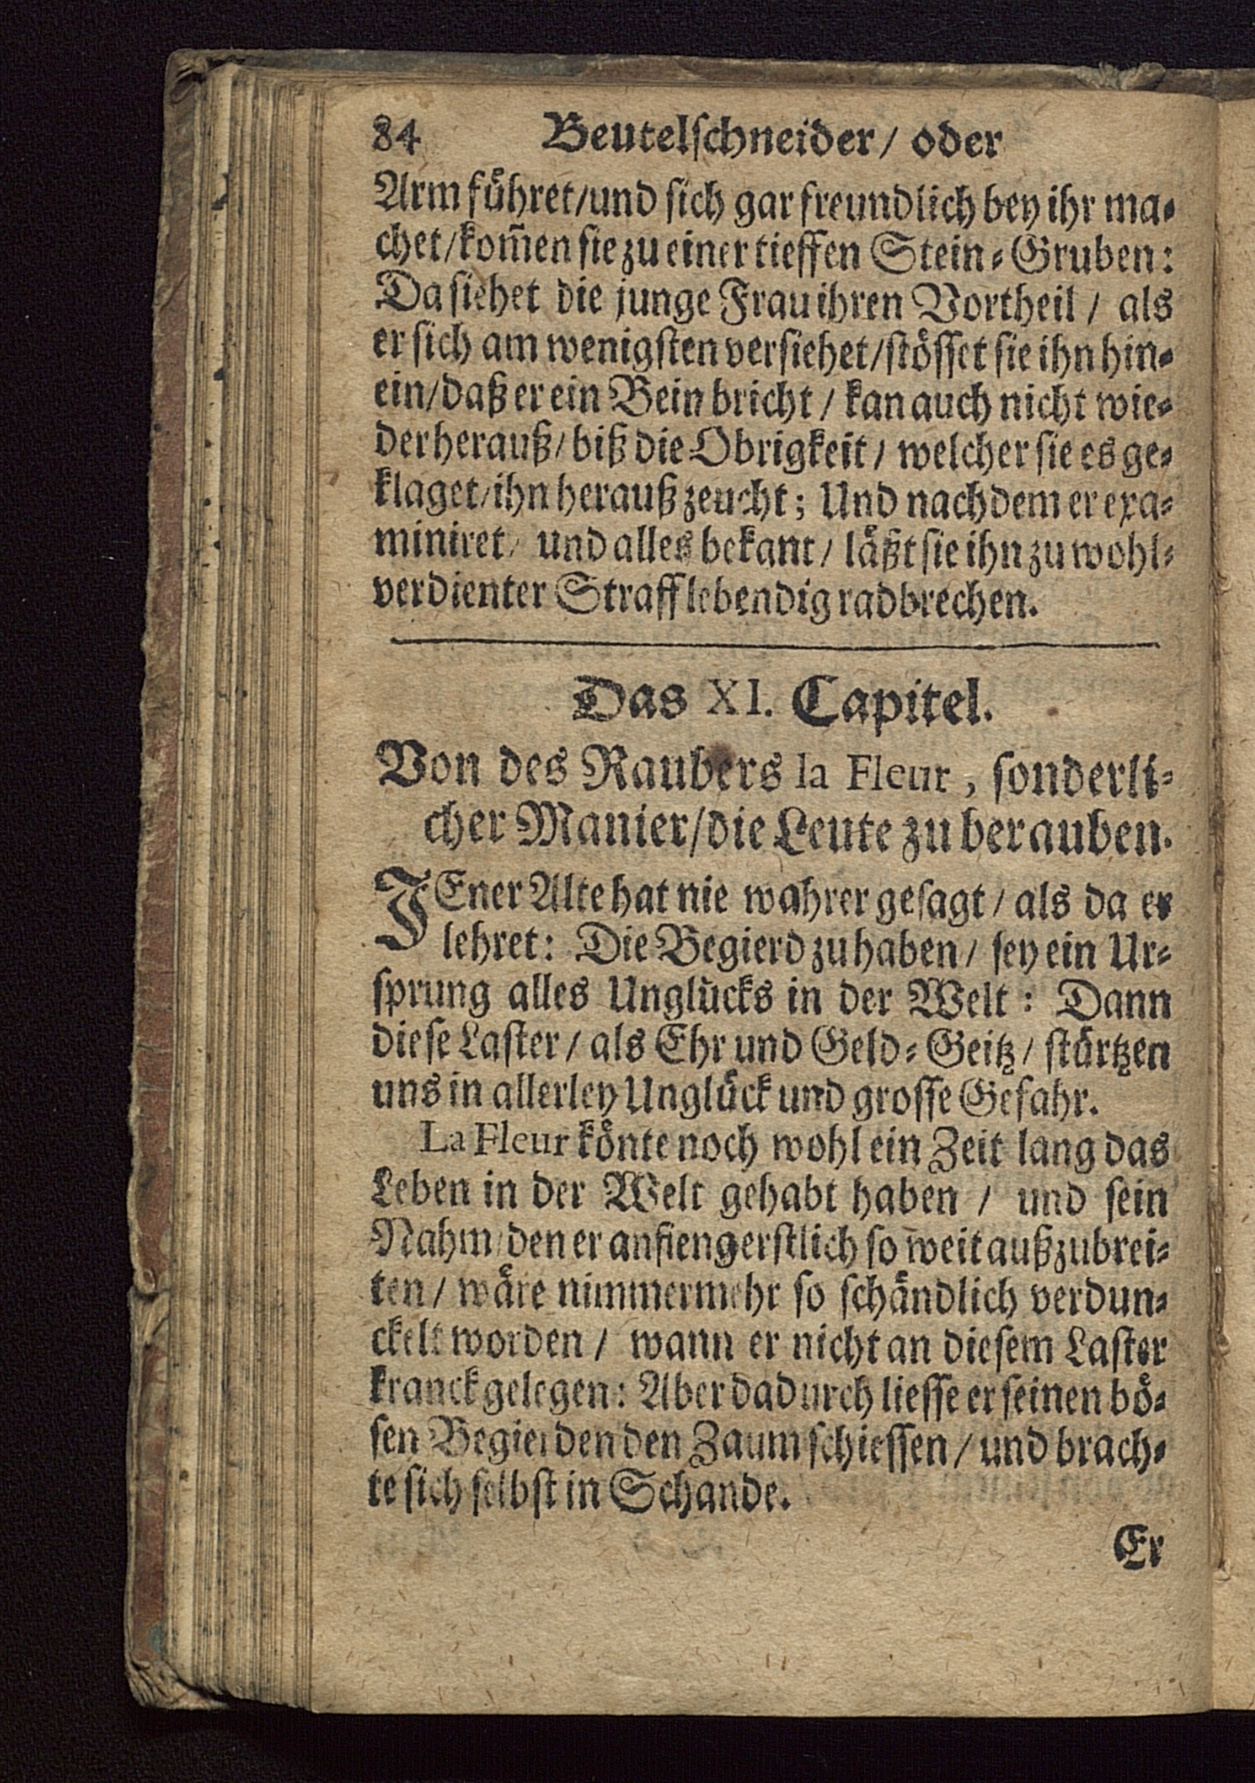 84 Beutelschneider/ oder
Arm führet/und sich gar freundlich bey ihr ma-
chet/kom̃en sie zu einer tieffen Stein-Gruben:
Da siehet die junge Frau ihren Vortheil / als
er sich am wenigsten versiehet/stösset sie ihn hin-
ein/daß er ein Bein bricht / kan auch nicht wie-
der herauß/ biß die Obrigkeit / welcher sie es ge-
klaget/ihn herauß zeucht; Und nachdem er exa-
miniret/ und alles bekant/ läßt sie ihn zu wohl-
verdienter Straff lebendig radbrechen.
Das XI. Capitel.
Von des Raubers la Fleur, sonderli-
cher Manier/die Leute zu berauben.
JEner Alte hat nie wahrer gesagt / als da er
lehret: Die Begierd zu haben / sey ein Ur-
sprung alles Unglücks in der Welt: Dann
diese Laster / als Ehr und Geld-Geitz / stürtzen
uns in allerley Unglück und grosse Gefahr.
La Fleur könte noch wohl ein Zeit lang das
Leben in der Welt gehabt haben / und sein
Nahm/ den er anfieng erstlich so weit außzubrei-
ten / wäre nimmermehr so schändlich verdun-
ckelt worden / wann er nicht an diesem Laster
kranck gelegen: Aber dadurch liesse er seinen bö-
sen Begierden den Zaum schiessen / und brach-
te sich selbst in Schande.
Er